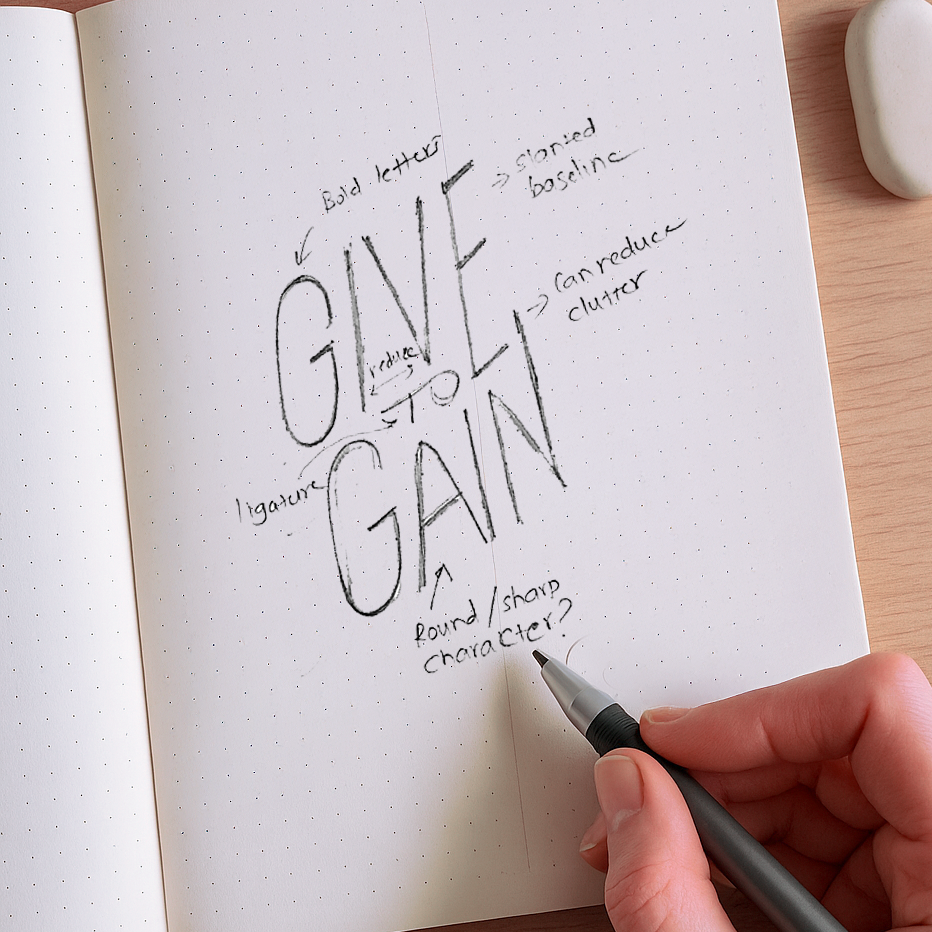 Bold letters
Slanted
baseline
GIVE
Can reduce
clutter
reduce
TO
ligature
GAIN
Round/sharp
character?